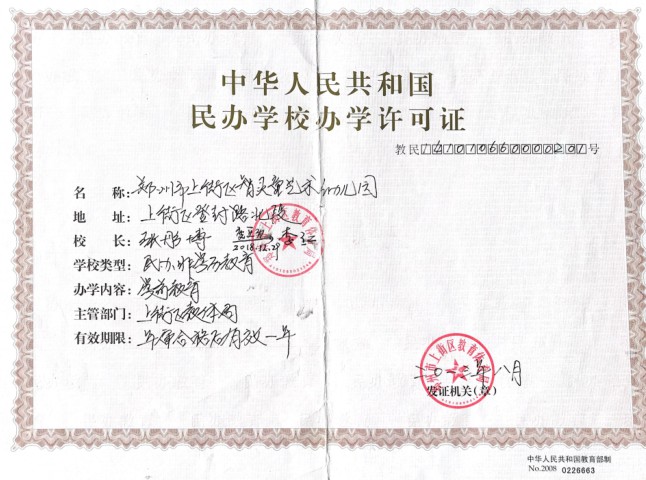 中华人民共和国
民办学校办学许可证
教民141010660000201号
名 称: 郑州市上街区智灵童艺术幼儿园
地 址: 上街区登封路北段
校 长: 张彤博 李
2018.12.29
学校类型: 民办非学历教育
办学内容: 学前教育
主管部门: 上街区教体局
有效期限: 年审合格后有效一年
郑州市上街区教育体育局
二〇一三年八月
发证机关(章)
中华人民共和国教育部制
No.2008 0226663